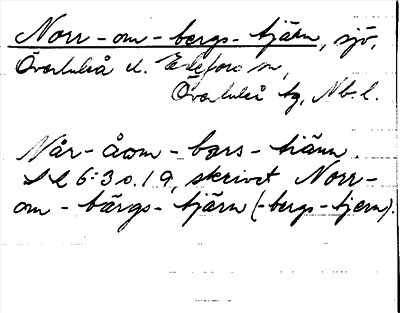 Norr-om-bergs-tjärn, sjö,
Överluleå el. Edefors sn,
Överluleå tg, Nb. l.
Når-åom-bars-tiänn.
Sl 6:3 s. 19, skrivet Norr-
om-bärgs-tjärn (-bergs-tjern).